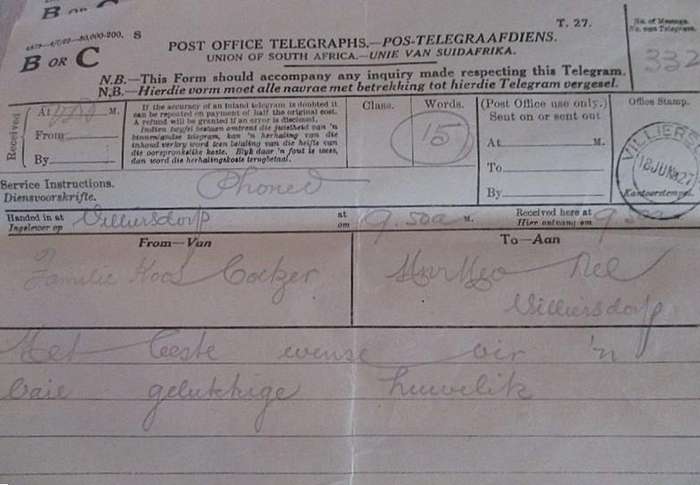 B OR C
S
T. 27.
No. of Message.
332
B OR C
POST OFFICE TELEGRAPHS.—POS-TELEGRAAFDIENS.
UNION OF SOUTH AFRICA.—UNIE VAN SUIDAFRIKA.
N.B.—This Form should accompany any inquiry made respecting this Telegram.
N.B.—Hierdie vorm moet alle navrae met betrekking tot hierdie Telegram vergesel.
Received
At M.
From
By
If the accuracy of an inland telegram is doubted it
can be repeated on payment of half the original cost.
A refund will be granted if an error is disclosed.
Indien twyfel bestaan omtrent die juistheid van 'n
binnenlandse telegram, kan 'n herhaling van die
inhoud verkry word teen betaling van die helfte van
die oorspronkelike koste. Blyk daar 'n fout te wees,
dan word die herhalingskoste terugbetaal.
Class.
Words.
15
(Post Office use only.)
Sent out or send out.
At M.
To
By
Office Stamp.
18 JUN 27
Kantoorstempel
Service Instructions.
Diensvoorskrifte.
Phoned
Handed in at
Ingelewer op
Villiersdorp
at
om
9.50a M.
Received here at
Hier ontvang om
9.50a
From—Van
To—Aan
Familie Koos Coetzer
Nel
Villiersdorp
Met beste wense vir 'n
baie gelukkige huwelik